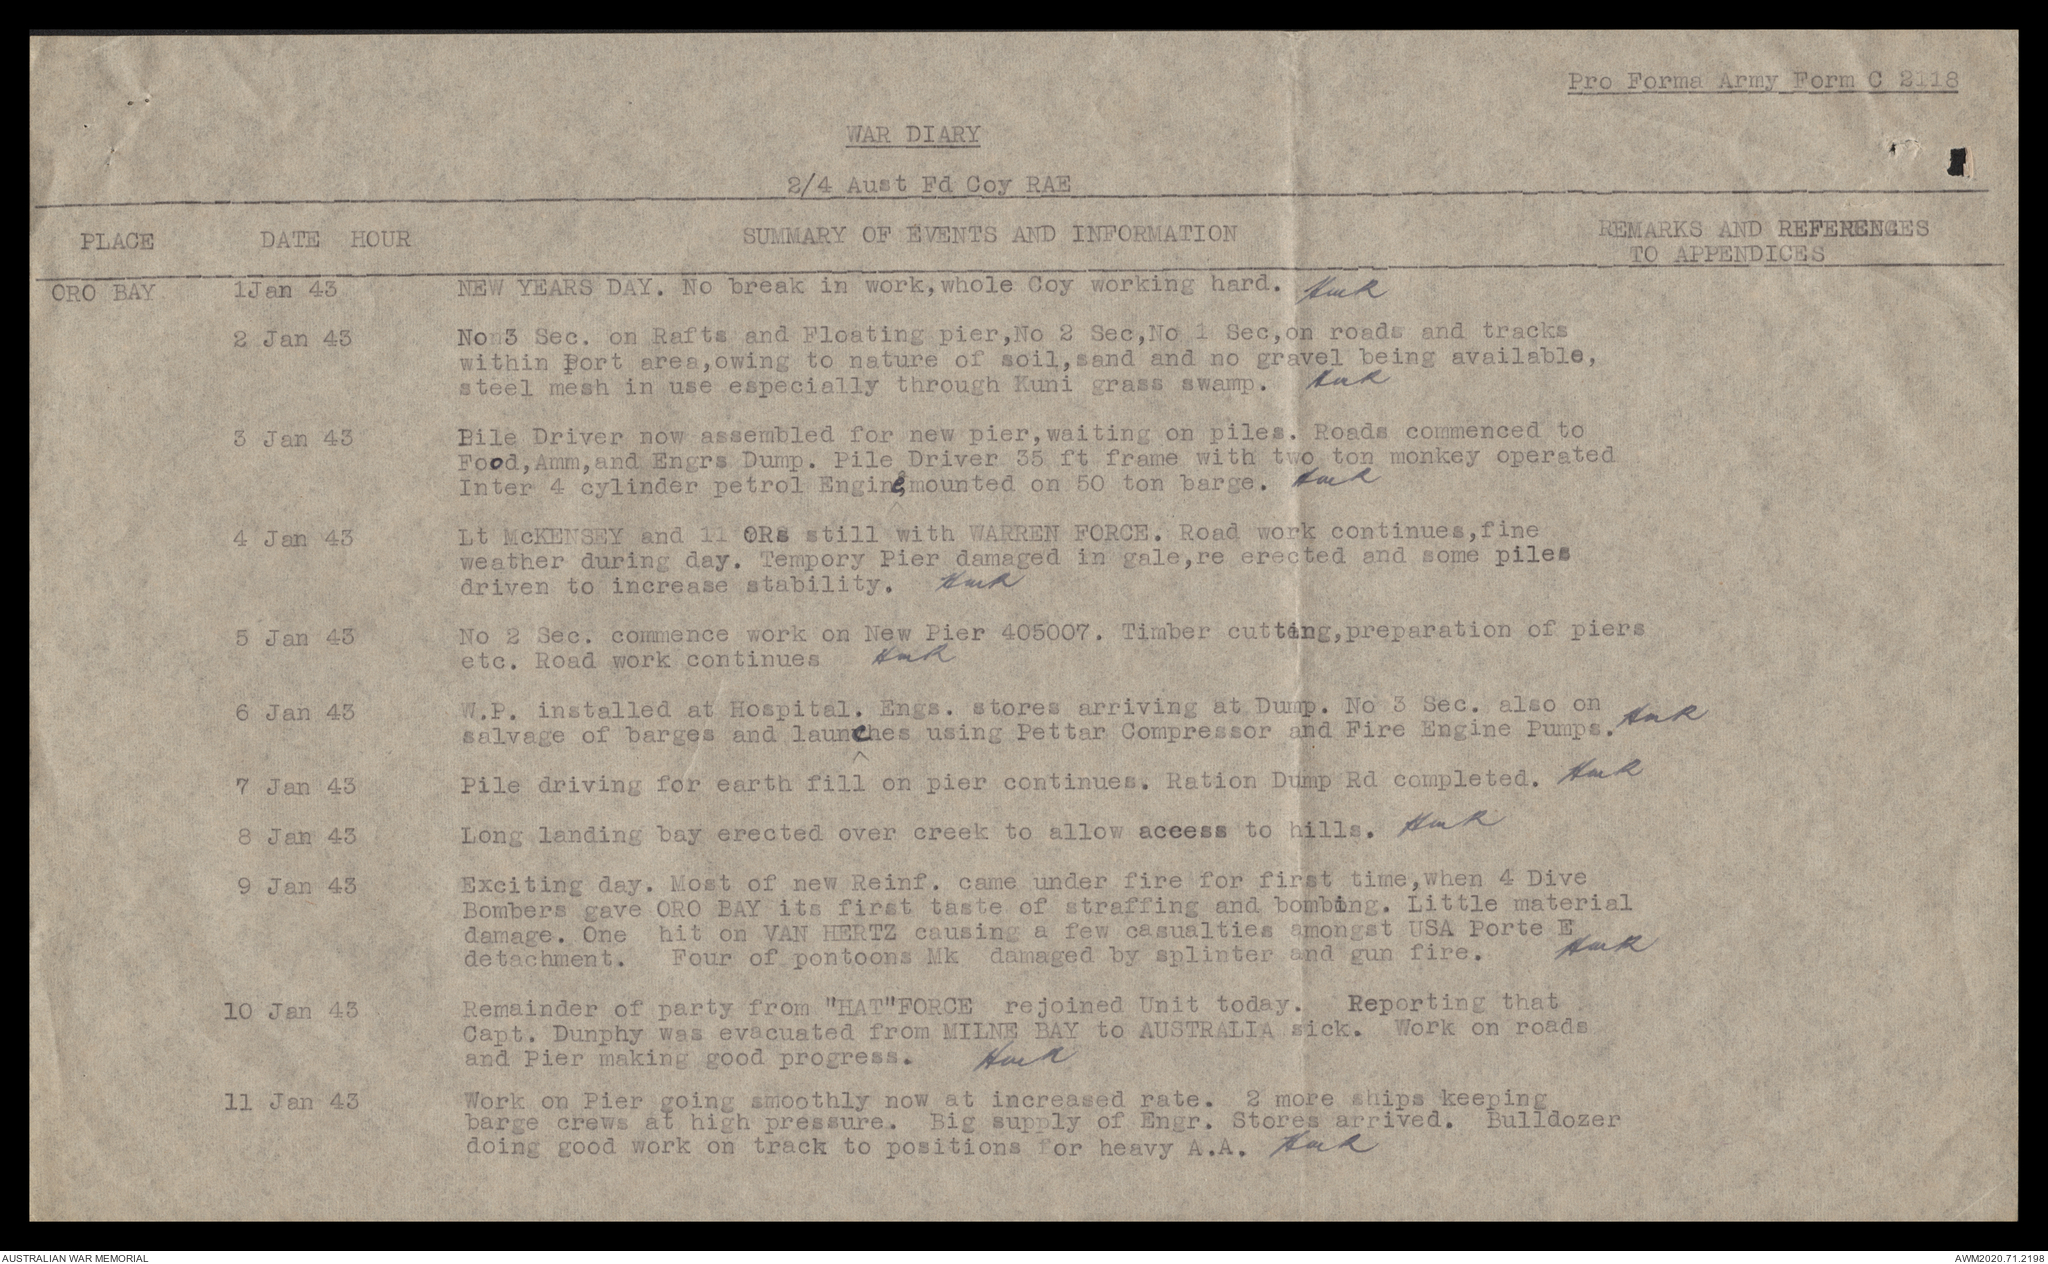 Pro Forma Army Form C 2118
WAR DIARY
2/4 Aust Fd Coy RAE
PLACE DATE HOUR SUMMARY OF EVENTS AND INFORMATION REMARKS AND REFERENCES
TO APPENDICES
ORO BAY 1Jan 43 NEW YEARS DAY. No break in work,whole Coy working hard.
2 Jan 43 No 3 Sec. on Rafts and Floating pier,No 2 Sec,No 1 Sec,on roads and tracks
within Port area,owing to nature of soil,sand and no gravel being available,
steel mesh in use especially through Kuni grass swamp.
3 Jan 43 Pile Driver now assembled for new pier,waiting on piles. Roads commenced to
Food,Amm,and Engrs Dump. Pile Driver 35 ft frame with two ton monkey operated
Inter 4 cylinder petrol Engine,mounted on 50 ton barge.
4 Jan 43 Lt McKENSEY and 11 ORs still with WARREN FORCE. Road work continues,fine
weather during day. Tempory Pier damaged in gale,re erected and some piles
driven to increase stability.
5 Jan 43 No 2 Sec. commence work on New Pier 405007. Timber cutting,preparation of piers
etc. Road work continues
6 Jan 43 W.P. installed at Hospital. Engs. stores arriving at Dump. No 3 Sec. also on
salvage of barges and launches using Pettar Compressor and Fire Engine Pumps.
7 Jan 43 Pile driving for earth fill on pier continues. Ration Dump Rd completed.
8 Jan 43 Long landing bay erected over creek to allow access to hills.
9 Jan 43 Exciting day. Most of new Reinf. came under fire for first time,when 4 Dive
Bombers gave ORO BAY its first taste of straffing and bombing. Little material
damage. One hit on VAN HERTZ causing a few casualties amongst USA Porte E
detachment. Four of pontoons Mk damaged by splinter and gun fire.
10 Jan 43 Remainder of party from "HAT"FORCE rejoined Unit today. Reporting that
Capt. Dunphy was evacuated from MILNE BAY to AUSTRALIA sick. Work on roads
and Pier making good progress.
11 Jan 43 Work on Pier going smoothly now at increased rate. 2 more ships keeping
barge crews at high pressure. Big supply of Engr. Stores arrived. Bulldozer
doing good work on track to positions for heavy A.A.
AUSTRALIAN WAR MEMORIAL AWM2020.71.2198